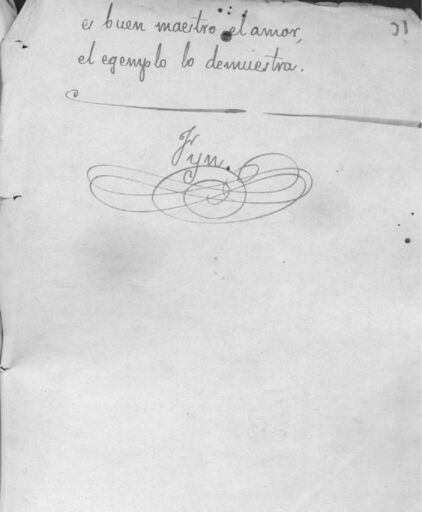 e buen maestro el amor,
el egemplo lo demuestra.
Fyn.